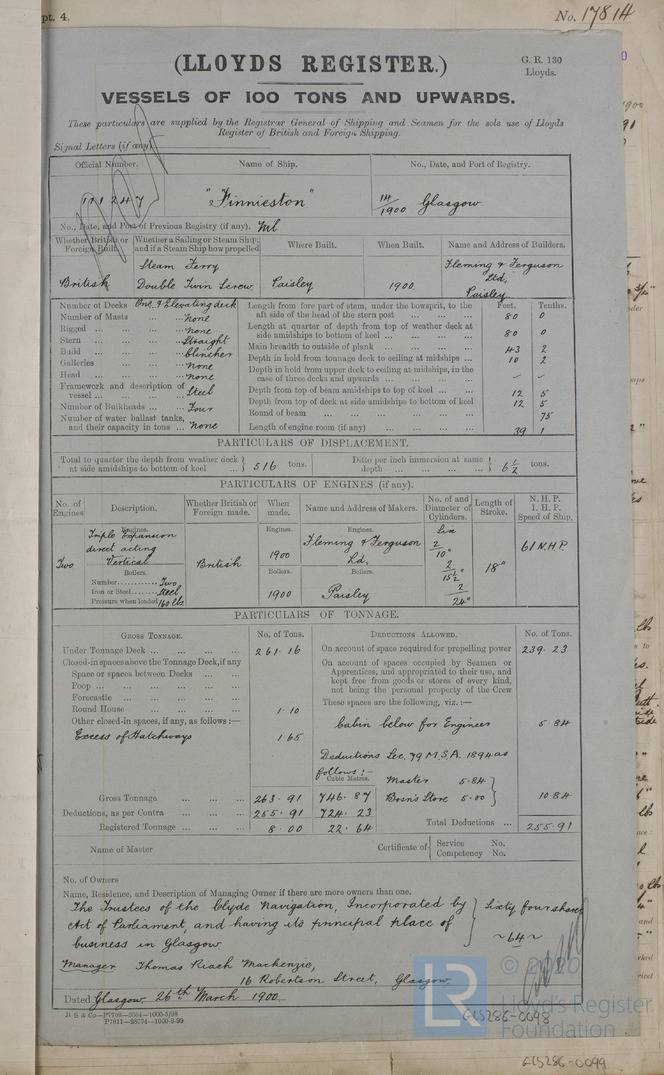 pt. 4.
No. 17814
(LLOYDS REGISTER.)
G. R. 130
Lloyds.
VESSELS OF 100 TONS AND UPWARDS.
These particulars are supplied by the Registrar General of Shipping and Seamen for the sole use of Lloyds
Register of British and Foreign Shipping.
Signal Letters (if any)
Official Number. Name of Ship. No., Date, and Port of Registry.
111247 "Finnieston" 14/1900 Glasgow
No., Date, and Port of Previous Registry (if any). Nil
Whether British or Foreign Built. Whether a Sailing or Steam Ship; and if a Steam Ship how propelled Where Built. When Built. Name and Address of Builders.
British Steam Ferry Double Twin Screw Paisley 1900 Fleming & Ferguson Ltd, Paisley
Number of Decks One & Elevating deck
Number of Masts ... None
Rigged ... None
Stern ... Straight
Build ... Clincher
Galleries ... None
Head ... None
Framework and description of vessel ... Steel
Number of Bulkheads ... Four
Number of water ballast tanks, and their capacity in tons ... None
Feet. Tenths.
Length from fore part of stem, under the bowsprit, to the aft side of the head of the stern post 80 0
Length at quarter of depth from top of weather deck at side amidships to bottom of keel 80 0
Main breadth to outside of plank 43 2
Depth in hold from tonnage deck to ceiling at midships 10 2
Depth in hold from upper deck to ceiling at midships, in the case of three decks and upwards - -
Depth from top of beam amidships to top of keel 12 5
Depth from top of deck at side amidships to bottom of keel 12 5
Round of beam 75
Length of engine room (if any) 39 1
PARTICULARS OF DISPLACEMENT.
Total to quarter the depth from weather deck at side amidships to bottom of keel } 516 tons. Ditto per inch immersion at same depth } 6 1/2 tons.
PARTICULARS OF ENGINES (if any).
No. of Engines Description. Whether British or Foreign made. When made. Name and Address of Makers. No. of and Diameter of Cylinders. Length of Stroke. N. H. P. I. H. P. Speed of Ship.
Engines. Engines. Engines. Six
Triple Expansion direct acting Vertical
Two British 1900 Fleming & Ferguson Ld, 2/10" 2/15½" 2/24" 18" 61 N.H.P.
Boilers. Boilers. Boilers.
Number ... Two
Iron or Steel ... Steel
Pressure when loaded 160 lbs
1900 Paisley
PARTICULARS OF TONNAGE.
GROSS TONNAGE. No. of Tons. DEDUCTIONS ALLOWED. No. of Tons.
Under Tonnage Deck 261.16
Closed-in spaces above the Tonnage Deck, if any
Space or spaces between Decks
Poop
Forecastle
Round House 1.10
Other closed-in spaces, if any, as follows :—
Excess of Hatchways 1.65
Gross Tonnage 263.91 746.87
Deductions, as per Contra 255.91 724.23
Registered Tonnage 8.00 22.64
On account of space required for propelling power 239.23
On account of spaces occupied by Seamen or Apprentices, and appropriated to their use, and kept free from goods or stores of every kind, not being the personal property of the Crew
These spaces are the following, viz. :—
Cabin below for Engineer 5.84
Deductions Sec. 79 M.S.A. 1894 as follows :-
Cubic Metres.
Master 5.84
Bosn's Store 5.00 } 10.84
Total Deductions 255.91
Name of Master Certificate of { Service No. Competency No.
No. of Owners
Name, Residence, and Description of Managing Owner if there are more owners than one.
The Trustees of the Clyde Navigation, Incorporated by } Sixty four shares
Act of Parliament, and having its principal place of
business in Glasgow ~64~
Manager Thomas Riach Mackenzie,
16 Robertson Street, Glasgow
Dated Glasgow 26th March 1900
© 2020
Lloyd's Register
Foundation
LR
GLS286-0098
GLS286-0099